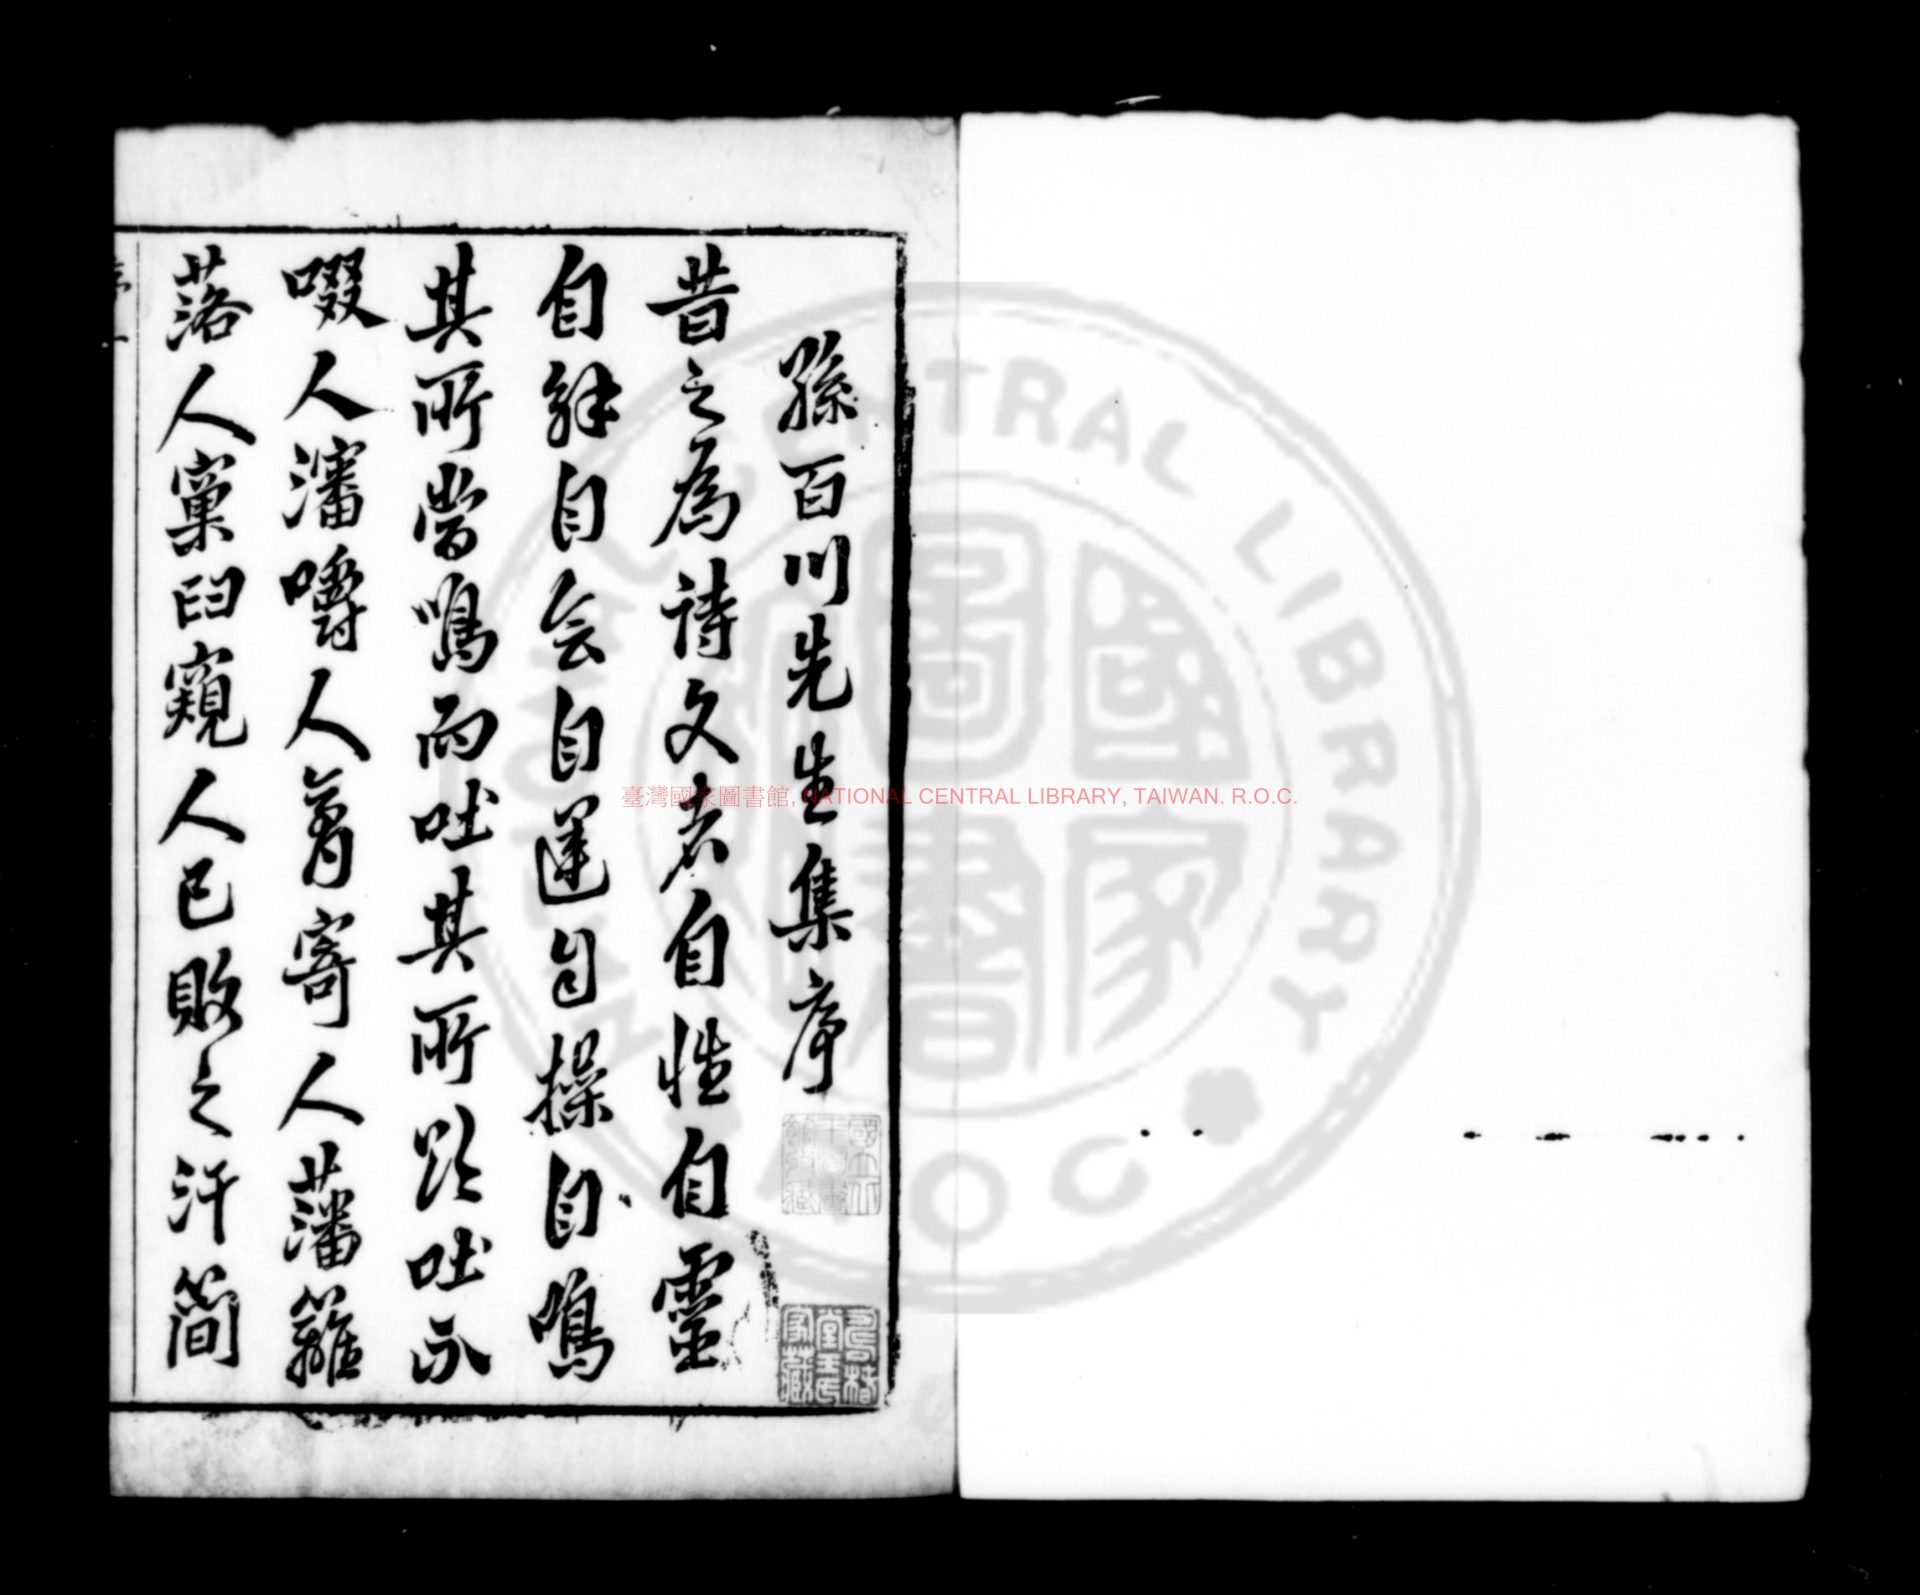 孫百川先生集序
昔之為詩文者自性自靈
自解自会自運自操自鳴
其所當鳴而吐其所欲吐不
啜人瀋嚼人臠寄人藩籬
落人窠臼窺人已敗之汗簡
序 一
臺灣國家圖書館, NATIONAL CENTRAL LIBRARY, TAIWAN. R.O.C.
NATIONAL CENTRAL LIBRARY
R.O.C.
國家圖書
國立北平圖書館所藏